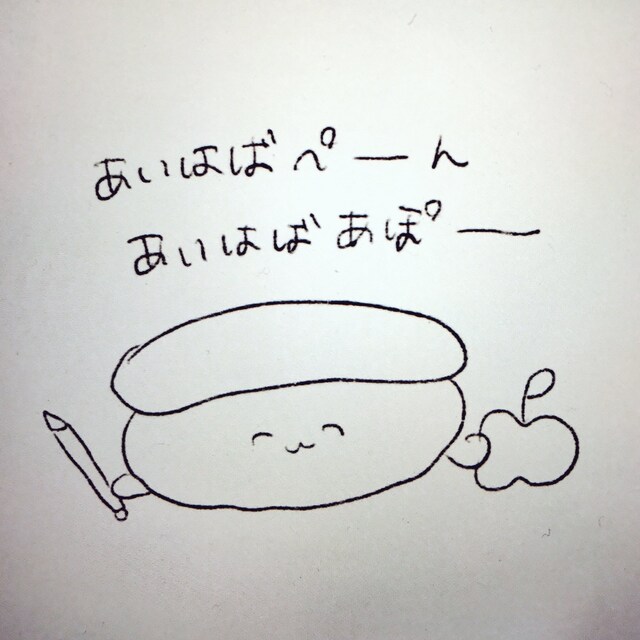 あいはばぺーん
あいはばあぽー